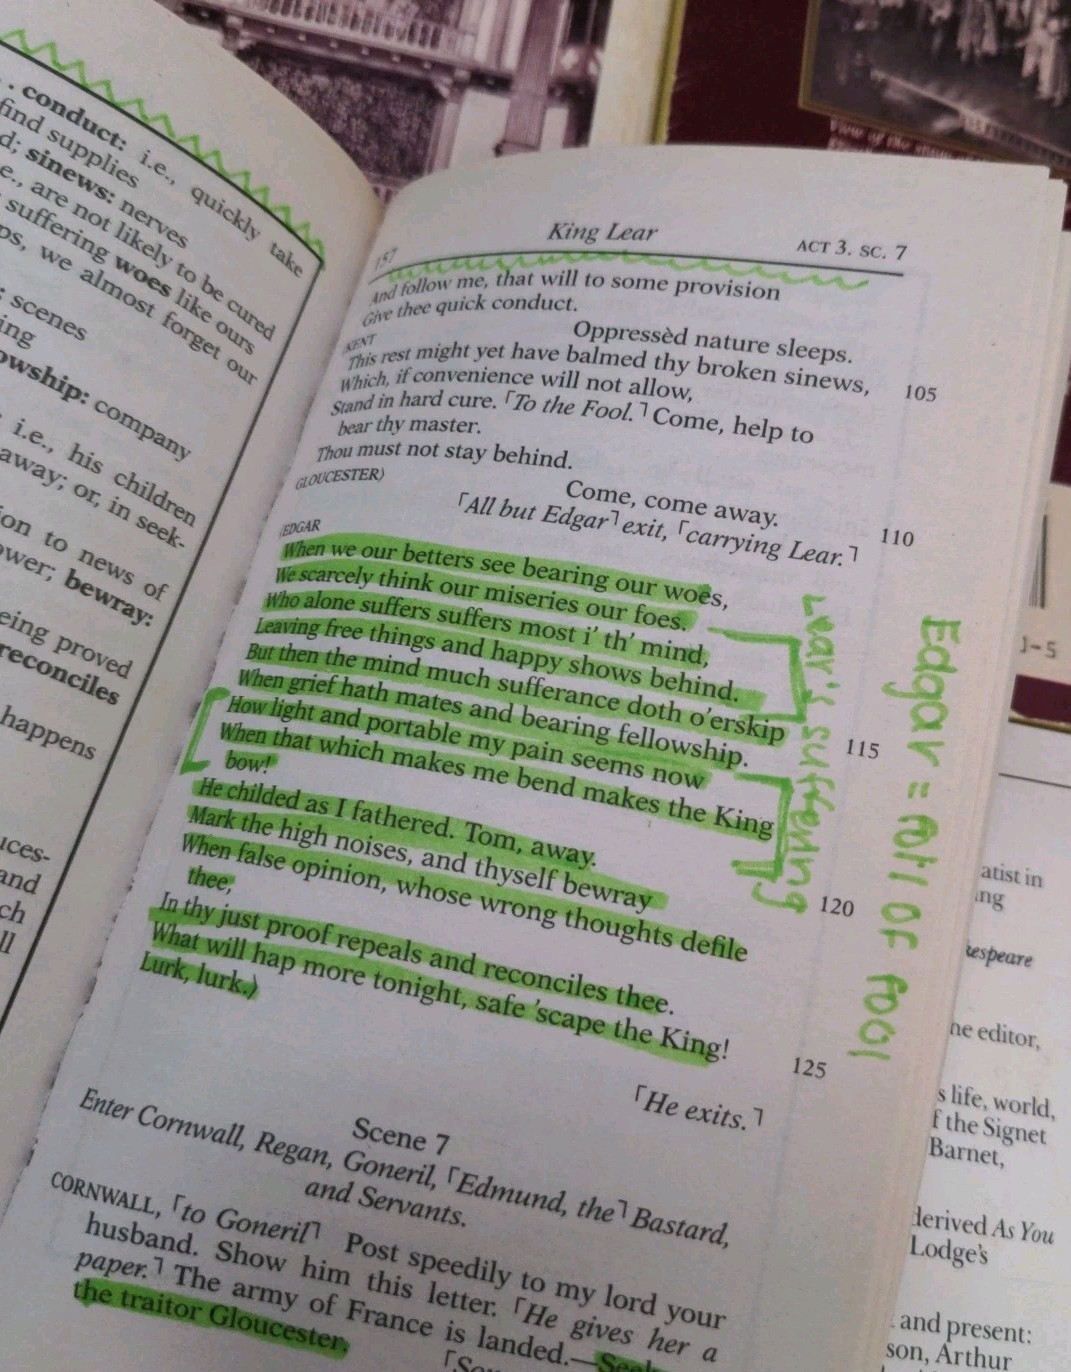 . conduct: i.e., quickly take
find supplies
d; sinews: nerves
e., are not likely to be cured
suffering woes like ours
ps, we almost forget our
: scenes
ing
owship: company
i.e., his children
away; or, in seek-
ion to news of
ower; bewray:
eing proved
reconciles
happens
uces-
and
ch
ll
157 King Lear ACT 3. SC. 7
And follow me, that will to some provision
Give thee quick conduct.
KENT Oppressèd nature sleeps.
This rest might yet have balmed thy broken sinews, 105
Which, if convenience will not allow,
Stand in hard cure. ⌜To the Fool.⌝ Come, help to
bear thy master.
Thou must not stay behind.
GLOUCESTER⟩ Come, come away.
⌜All but Edgar⌝ exit, ⌜carrying Lear.⌝ 110
⟨EDGAR
When we our betters see bearing our woes,
We scarcely think our miseries our foes.
Who alone suffers suffers most i' th' mind,
Leaving free things and happy shows behind.
But then the mind much sufferance doth o'erskip
When grief hath mates and bearing fellowship. 115
How light and portable my pain seems now
When that which makes me bend makes the King
bow!
He childed as I fathered. Tom, away.
Mark the high noises, and thyself bewray
When false opinion, whose wrong thoughts defile 120
thee,
In thy just proof repeals and reconciles thee.
What will hap more tonight, safe 'scape the King!
Lurk, lurk.⟩
125
⌜He exits.⌝
Scene 7
Enter Cornwall, Regan, Goneril, ⌜Edmund, the⌝ Bastard,
and Servants.
CORNWALL, ⌜to Goneril⌝ Post speedily to my lord your
husband. Show him this letter. ⌜He gives her a
paper.⌝ The army of France is landed.—Seek
the traitor Gloucester.
Lear's suffering
Edgar = foil of fool
1-5
atist in
ing
kespeare
he editor,
s life, world,
f the Signet
Barnet,
derived As You
Lodge's
and present:
son, Arthur